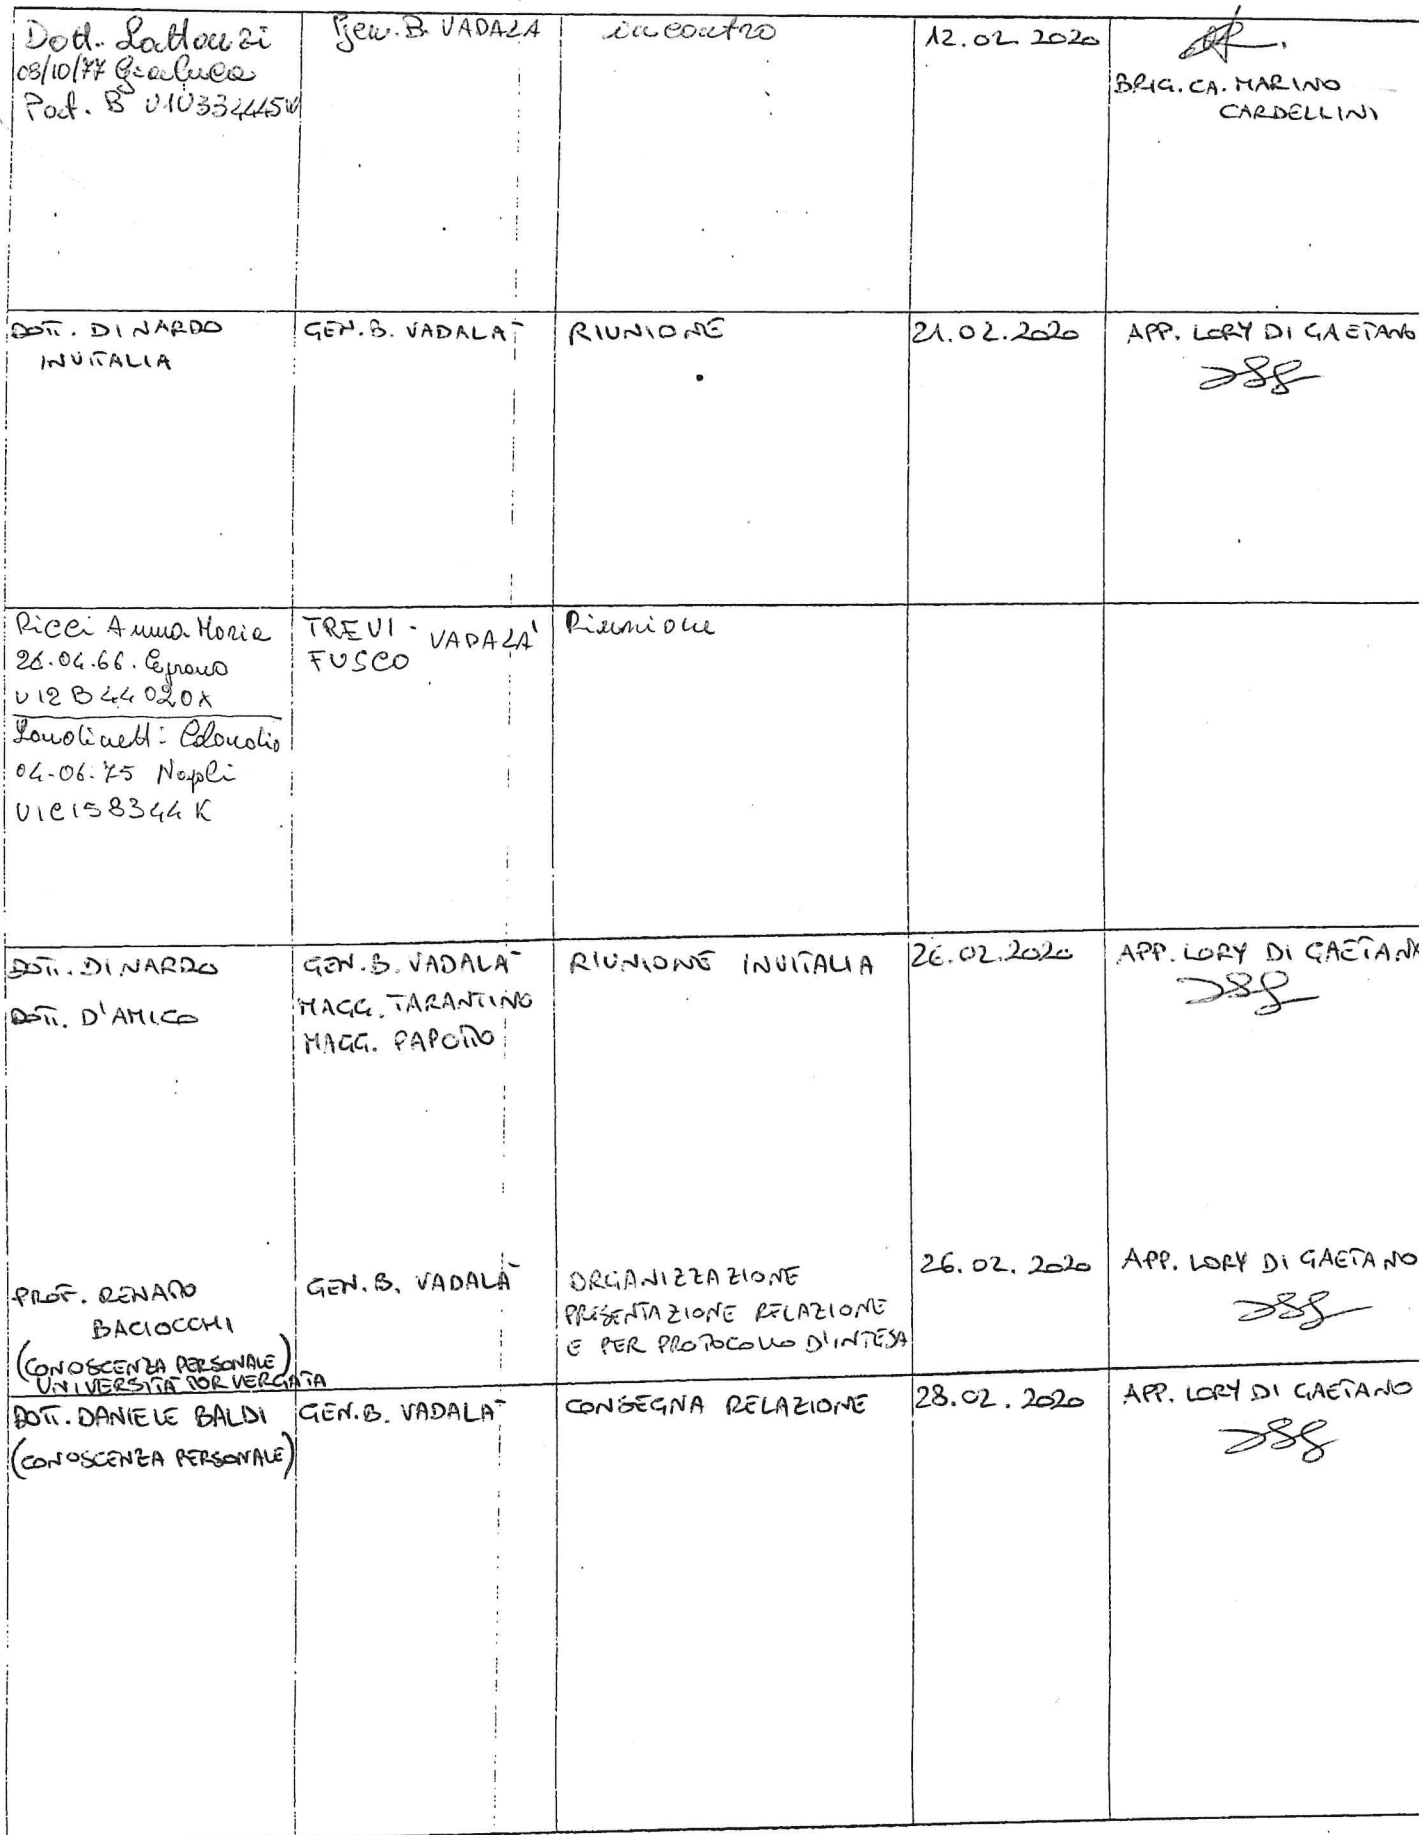 Dott. Lattanzi
08/10/77 Gianluca
Pat. B U1U334445W
Gen. B. VADALA
incontro
12.02.2020
BRIG. CA. MARINO
CARDELLINI
DOTT. DI NARDO
INVITALIA
GEN. B. VADALA'
RIUNIONE
21.02.2020
APP. LORY DI GAETANO
Ricci Anna Maria
26.04.66.
U12B44020X
TREVI - VADALA'
FUSCO
Riunione
04-06-75 Napoli
U1C158344K
DOTT. DI NARDO
DOTT. D'AMICO
GEN. B. VADALA'
MAGG. TARANTINO
MAGG. PAPOTTO
RIUNIONE INVITALIA
26.02.2020
APP. LORY DI GAETANO
PROF. RENATO
BACIOCCHI
(CONOSCENZA PERSONALE)
UNIVERSITÀ TOR VERGATA
GEN. B. VADALA'
ORGANIZZAZIONE
PRESENTAZIONE RELAZIONE
E PER PROTOCOLLO D'INTESA
26.02.2020
APP. LORY DI GAETANO
DOTT. DANIELE BALDI
(CONOSCENZA PERSONALE)
GEN. B. VADALA'
CONSEGNA RELAZIONE
28.02.2020
APP. LORY DI GAETANO